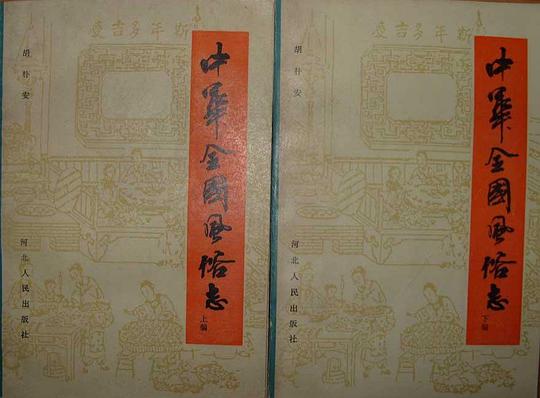 新年多吉慶
中華全國風俗志
上编
胡朴安
河北人民出版社
新年多吉慶
中華全國風俗志
下编
胡朴安
河北人民出版社